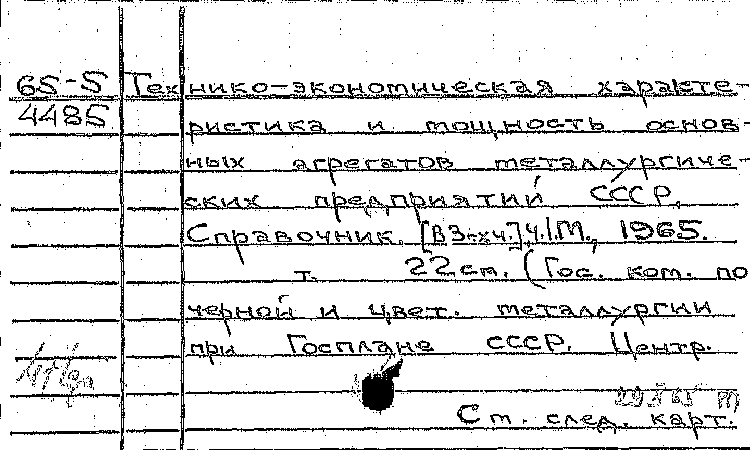 65-5 Технико-экономическая характе-
4485
ристика и мощность основ-
ных агрегатов металлургиче-
ских предприятий СССР.
Справочник. [В 3-х ч.] Ч.1. М., 1965.
т. 22 см. (Гос. ком. по
черной и цвет. металлургии
при Госплане СССР. Центр.
См. след. карт.